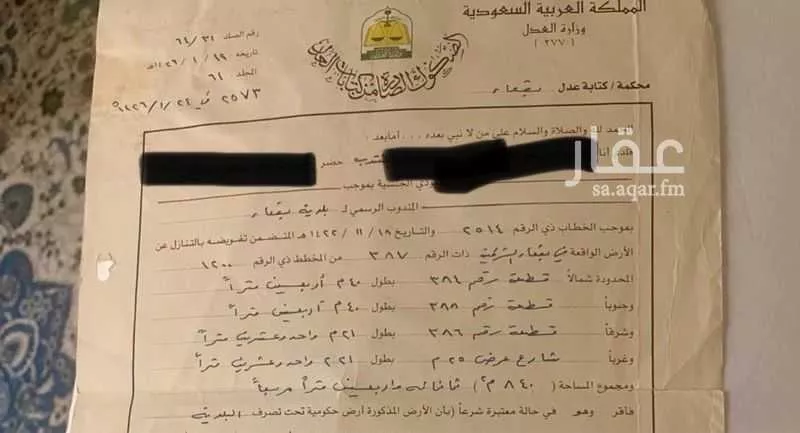 المملكة العربية السعودية
وزارة العدل
(٢٧٧٠)
محكمة / كتابة عدل بقعاء
رقم الصك ٦٤/٣١
تاريخه ١٩/١/٢٦ ١٤هـ
المجلد ٦١
٢٥٧٣ في ٢٤/١/١٤٢٦هـ
الحمد لله والصلاة والسلام على من لا نبي بعده ... أما بعد:
فلدي أنا
حضر
الجنسية بموجب
المندوب الرسمي لـ بلدية بقعاء
بموجب الخطاب ذي الرقم ٢٥١٤ والتاريخ ١٨/١١/١٤٢٢هـ المتضمن تفويضه بالتنازل عن
الأرض الواقعة في بقعاء الشرقية ذات الرقم ٣٨٧ من المخطط ذي الرقم ١٢٠٠
المحدودة شمالاً قطعة رقم ٣٨٤ بطول ٤٠م أربعين متراً
وجنوباً قطعة رقم ٣٨٨ بطول ٤٠م أربعين متراً
وشرقاً قطعة رقم ٣٨٦ بطول ٢١م واحد وعشرين متراً
وغرباً شارع عرض ٢٥م بطول ٢١م واحد وعشرين متراً
ومجموع المساحة (٨٤٠م٢) ثمانمائة وأربعين متراً مربعاً
فأقر وهو في حالة معتبرة شرعاً (بأن الأرض المذكورة أرض حكومية تحت تصرف البلدية
عقار
sa.aqar.fm